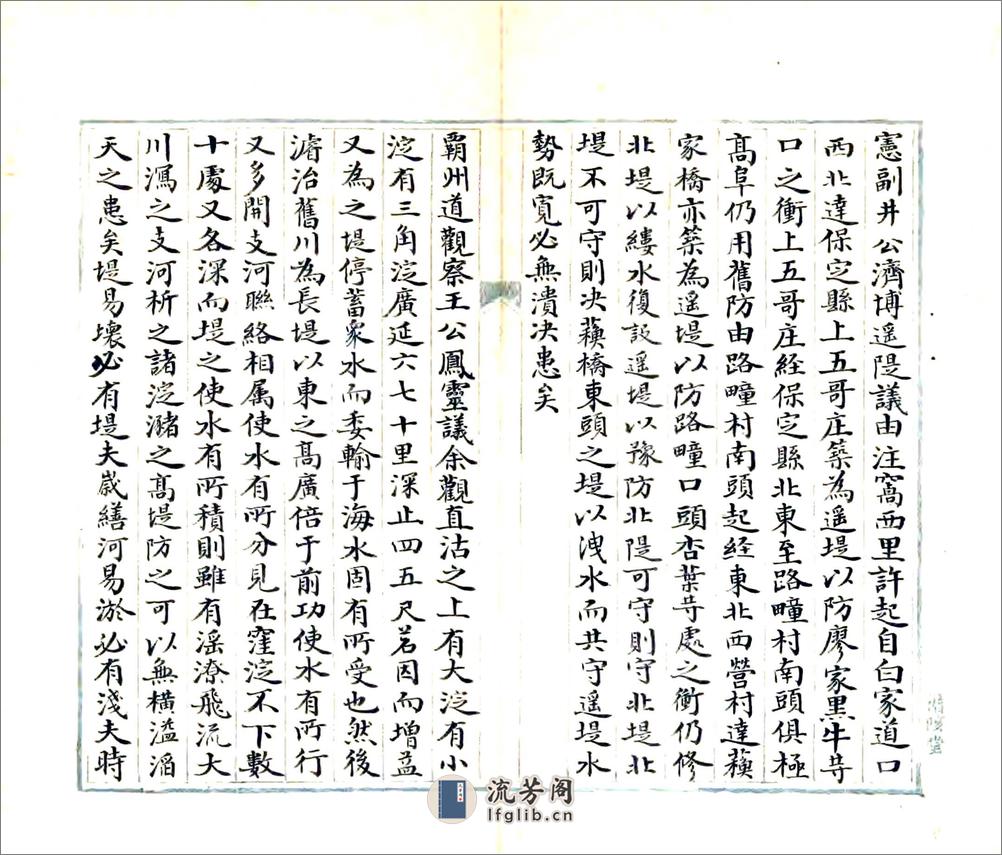 憲副井公濟博遥隄議由注窩西里許起自白家道口
西北達保定縣上五哥庄築為遥堤以防廖家黑牛等
口之衝上五哥庄経保定縣北東至路疃村南頭俱極
髙阜仍用舊防由路疃村南頭起経東北西營村達蘓
家橋亦築為遥堤以防路疃口頭杏葉等處之衝仍修
北堤以縷水復設遥堤以豫防北隄可守則守北堤北
堤不可守則决蘓橋東頭之堤以洩水而共守遥堤水
勢既寛必無潰决患矣
覇州道觀察王公鳳靈議余觀直沽之上有大淀有小
淀有三角淀廣延六七十里深止四五尺若因而增益
又為之堤停蓄衆水而委輸于海水固有所受也然後
濬治舊川為長堤以東之髙廣倍于前功使水有所行
又多開支河聯絡相属使水有所分見在窪淀不下數
十處又各深而堤之使水有所積則雖有滛潦飛流大
川瀉之支河析之諸淀瀦之髙堤防之可以無横溢滔
天之患矣堤易壞必有堤夫歲繕河易淤必有淺夫時
流芳阁
lfglib.cn